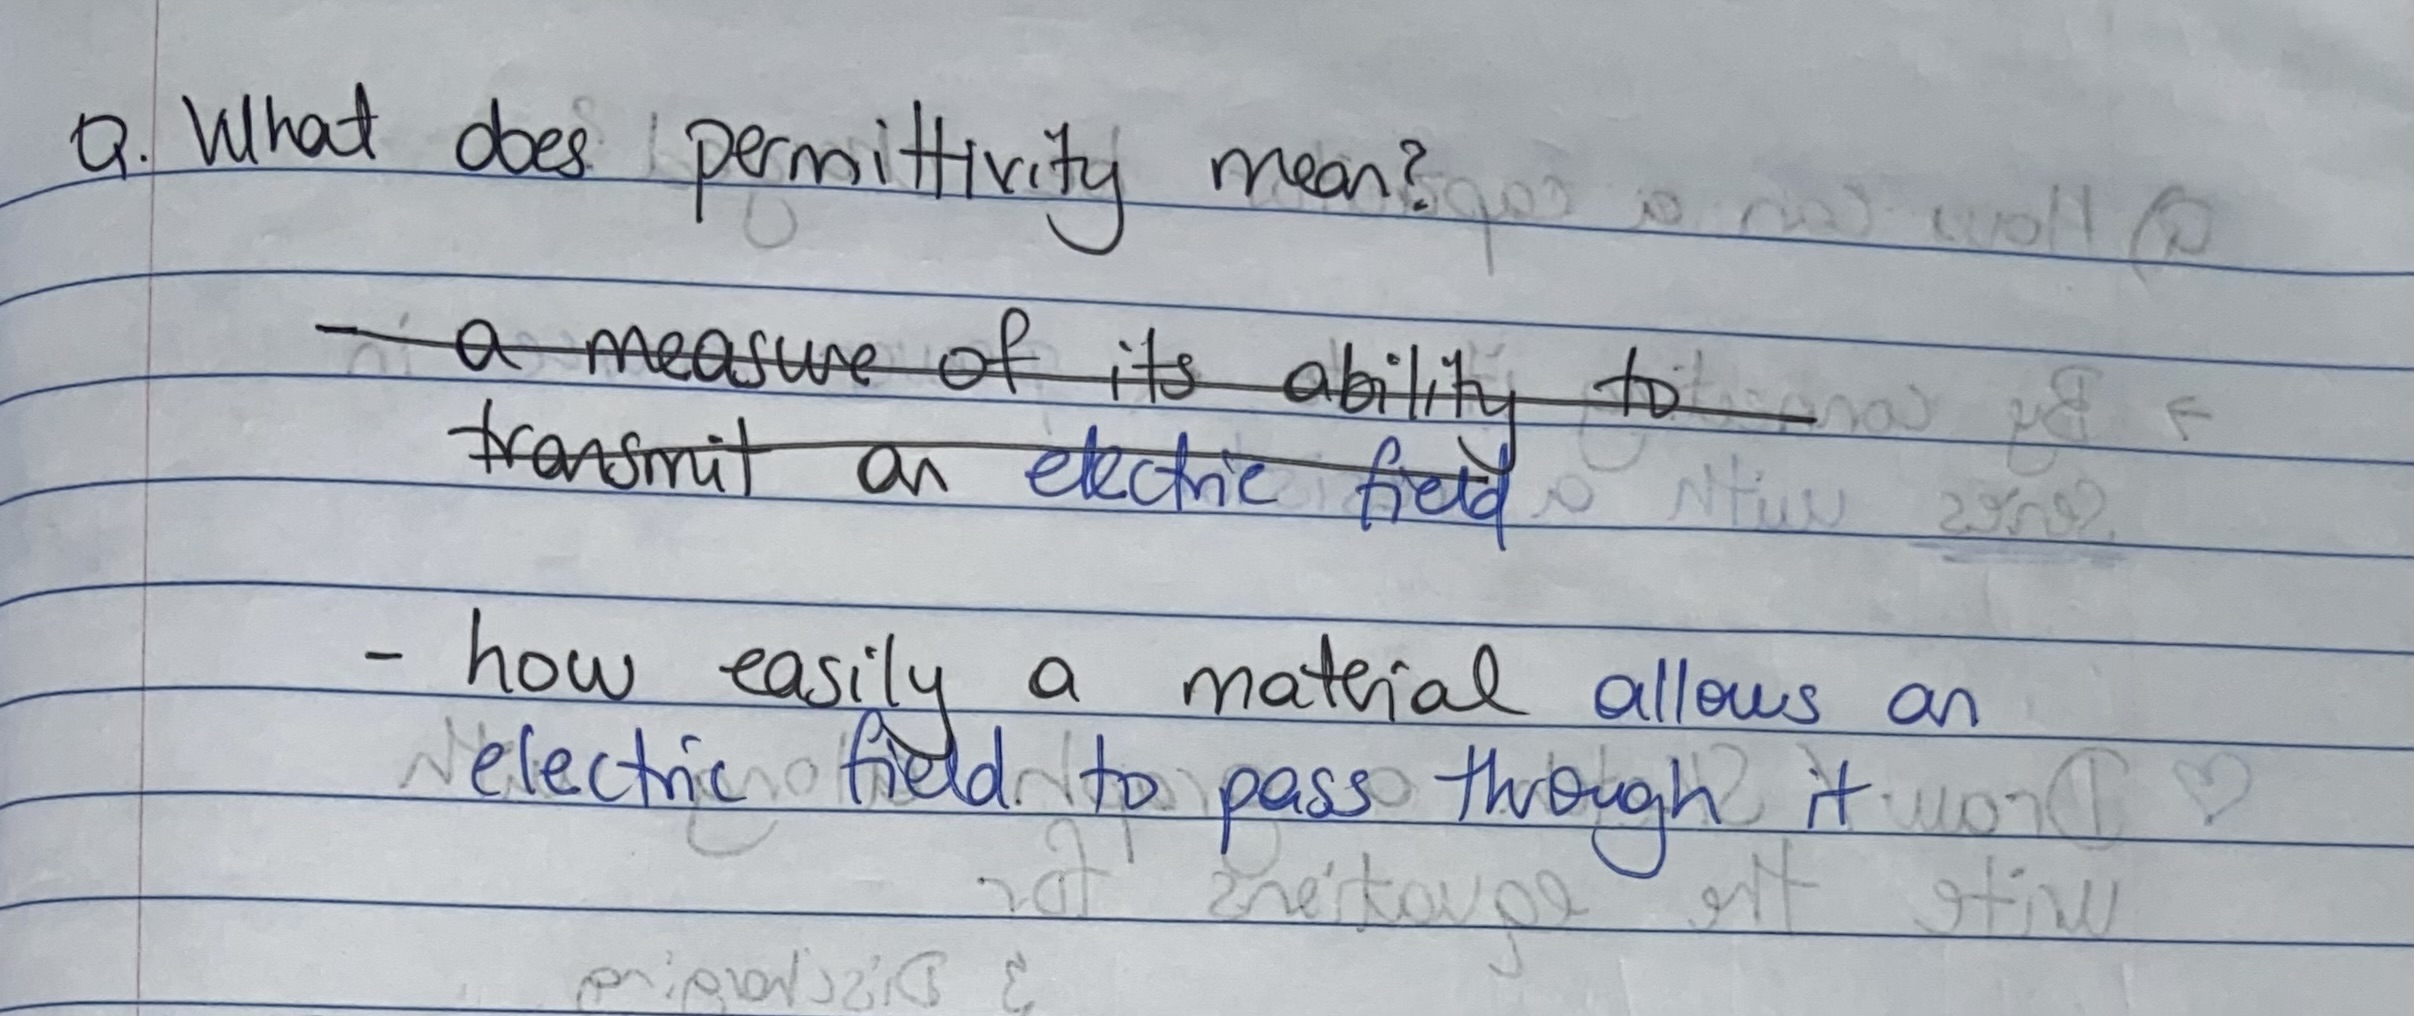 Q. What does permittivity mean?
- a measure of its ability to
transmit an electric field
- how easily a material allows an
electric field to pass through it